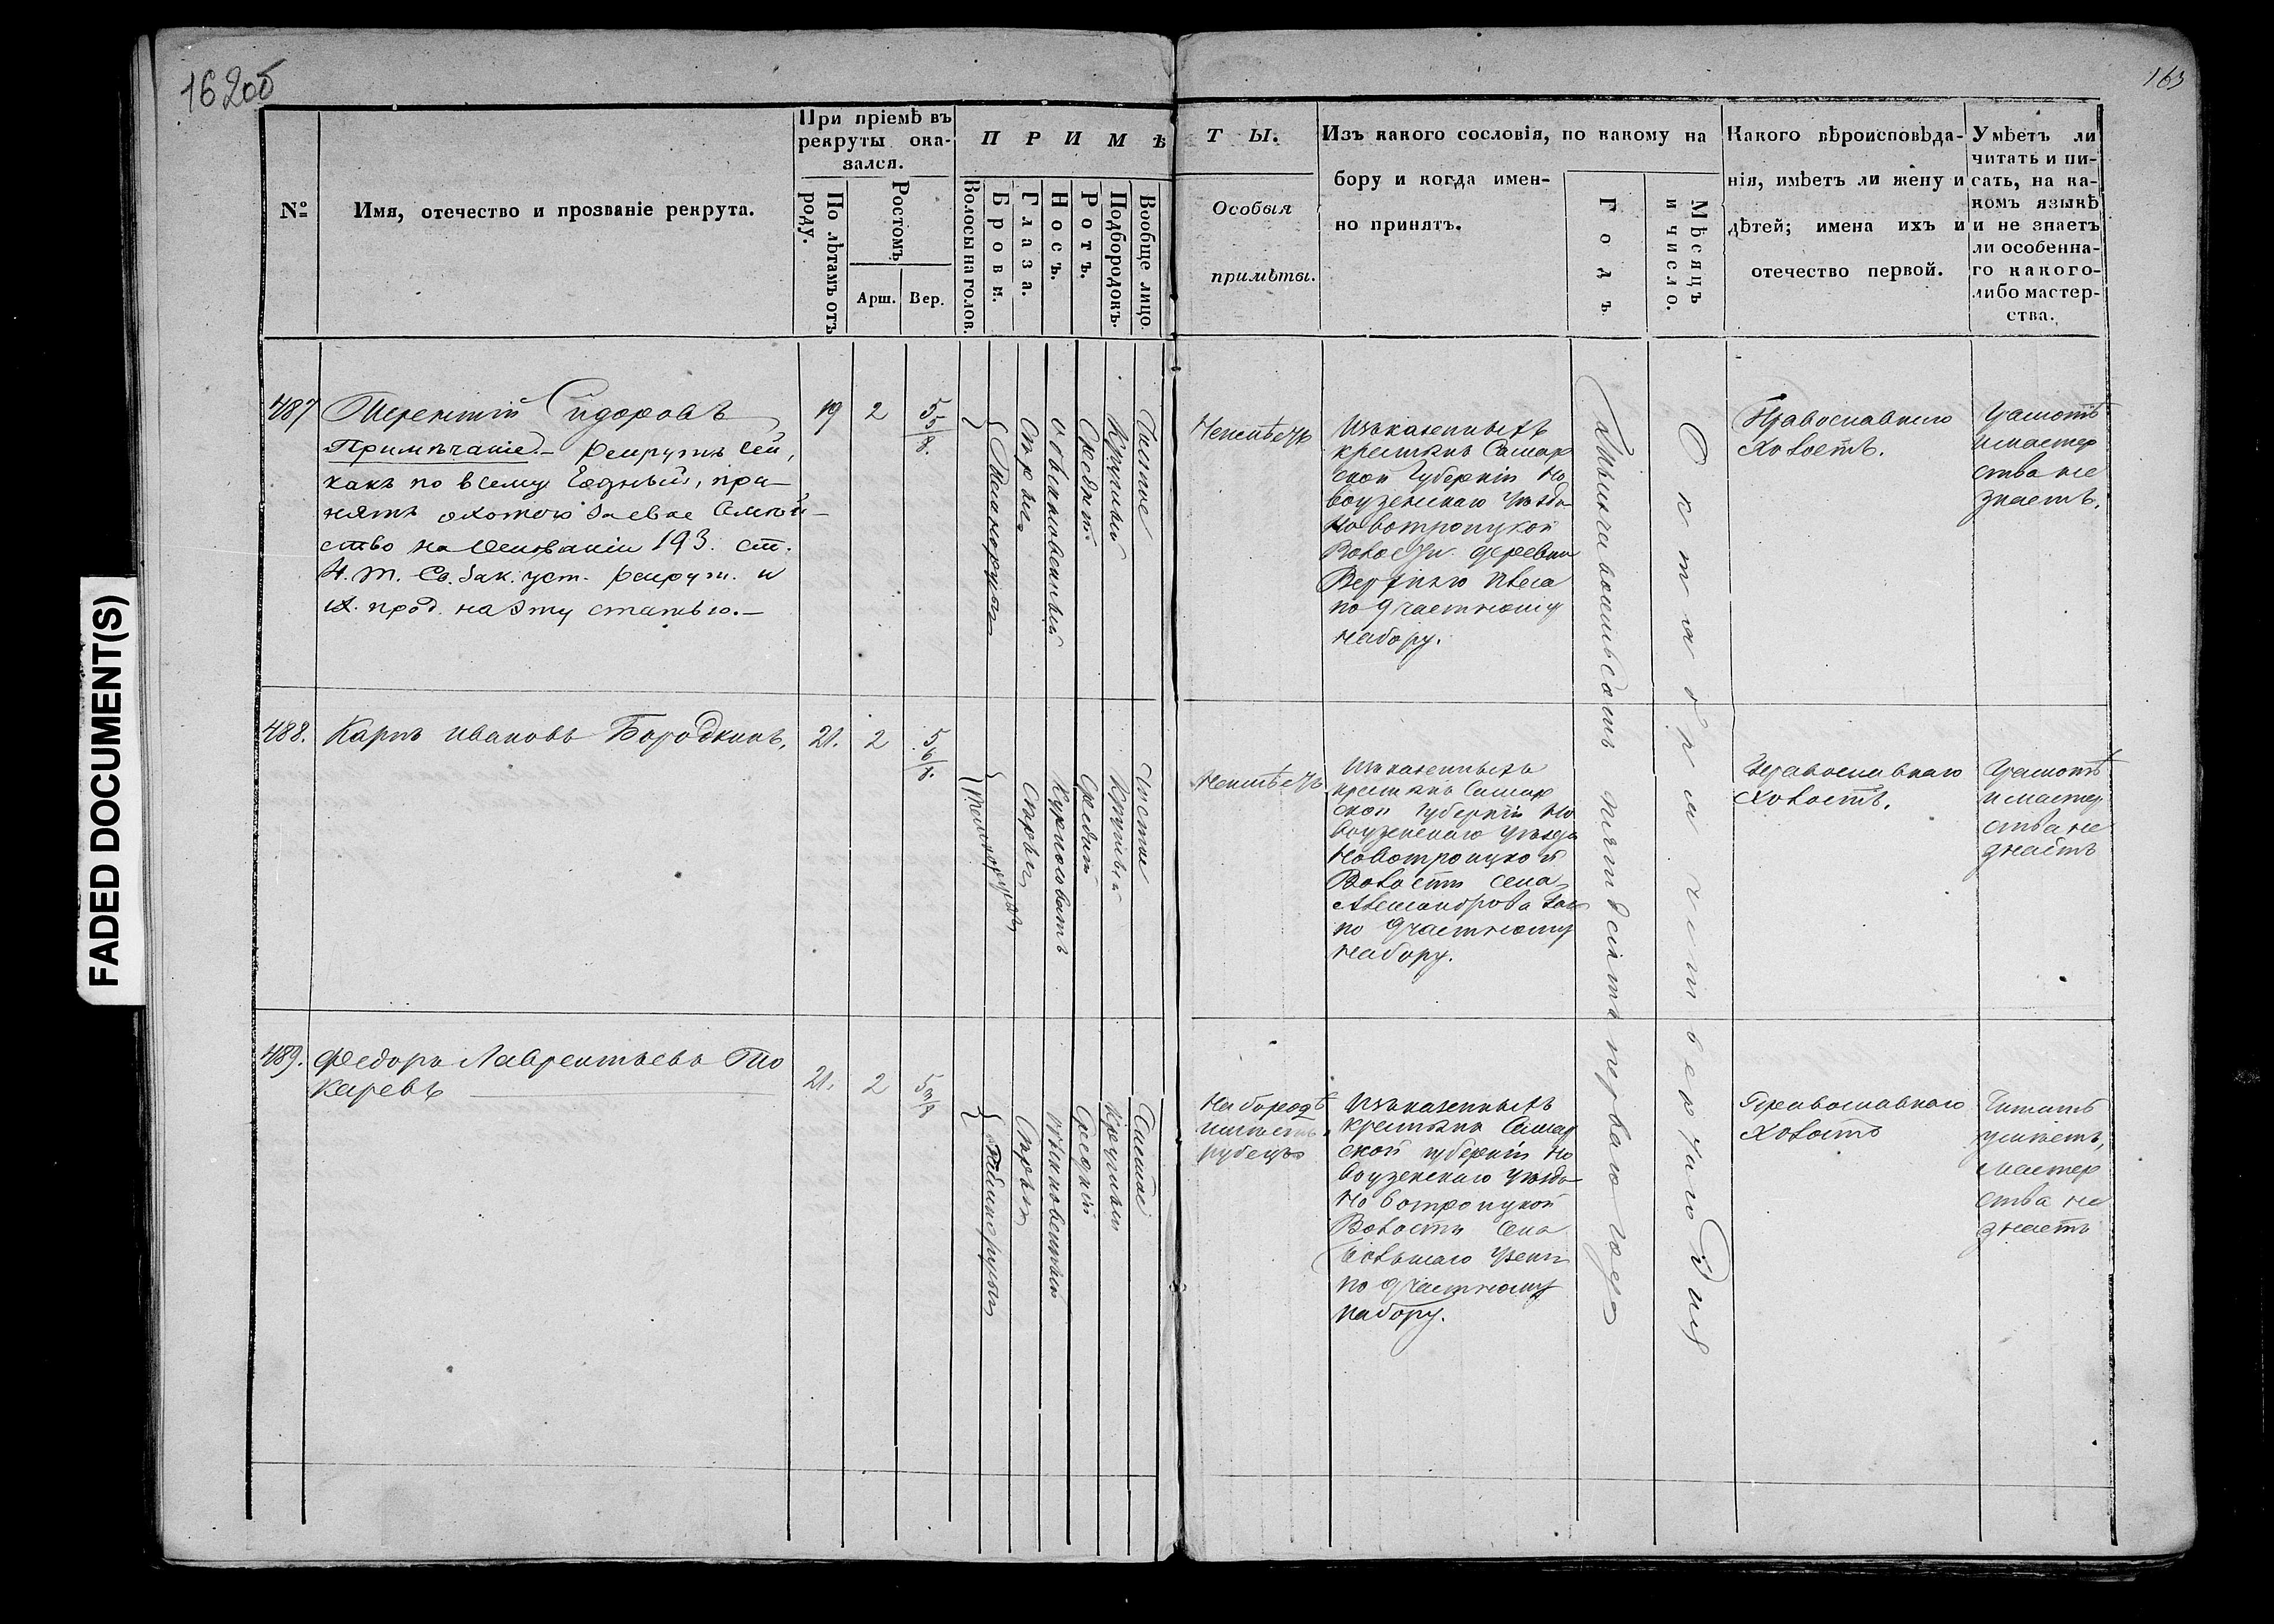 162об
163
FADED DOCUMENT(S)
№
Имя, отечество и прозваніе рекрута.
При пріемѣ въ
рекруты ока-
зался.
По лѣтамъ отъ
роду.
Ростомъ
Арш.
Вер.
ПРИМѢ
Волосы на голов.
Брови.
Глаза.
Носъ.
Ротъ.
Подбородокъ.
Вообще лицо.
ТЫ.
Особыя
примѣты.
Изъ какого сословія, по какому на
бору и когда имен-
но принятъ.
Годъ.
Мѣсяцъ
и число.
Какого вѣроисповѣда-
нія, имѣетъ ли жену и
дѣтей; имена ихъ и
отечество первой.
Умѣетъ ли
читать и пи-
сать, на ка-
комъ языкѣ
и не знаетъ
ли особенна-
го какого-
либо мастер-
ства.
487
Терентій Сидоровъ
Примѣчаніе. – Рекрутъ сей,
какъ по всему годный, при-
нятъ охотою за свое Семей-
ство на основаніи 193. ст.
4. т. Св. Зак. уст. рекрут. и
прод. на эту статью. –
19
2
5 5/8.
Темнорусыя
Сѣрые
Обыкновенный
Средній
Круглый
Чистое
Неимѣетъ
Изъ казенныхъ
крестьянъ Самар
ской Губерніи Но
воузенскаго уѣзда
Новотроицкой
Волости деревни
по 9 частному
набору.
Тысяча восемьсотъ пятьдесятъ перваго года
Октября четвертаго дня
Православнаго
Холостъ.
Грамотѣ
и мастер
ства не
знаетъ.
488.
Карпъ Ивановъ Бородкинъ,
21.
2
5 6/8.
Темнорусыя
Сѣрыя
Курносоватъ
Средній
Круглый
Чистое
Неимѣетъ
Изъ казенныхъ
крестьянъ Самар
ской Губерніи Но
воузенскаго уѣзда
Новотроицкой
Волости села
Александрова Гая
по 9 частному
набору.
Православнаго
Холостъ.
Грамотѣ
и мастер
ства не
знаетъ
489.
Федоръ Лаврентьевъ То
каревъ
21.
2
5 3/8
Сѣрыя
Обыкновенный
Средній
Круглый
Чистое
На бородѣ
имѣетъ
рубецъ
Изъ казенныхъ
крестьянъ Самар
ской губерніи Но
воузенскаго уѣзда
Новотроицкой
Волости села
Большаго Узеня
по 9 частному
набору.
Православнаго
Холостъ
Читать
умѣетъ,
мастер
ства не
знаетъ